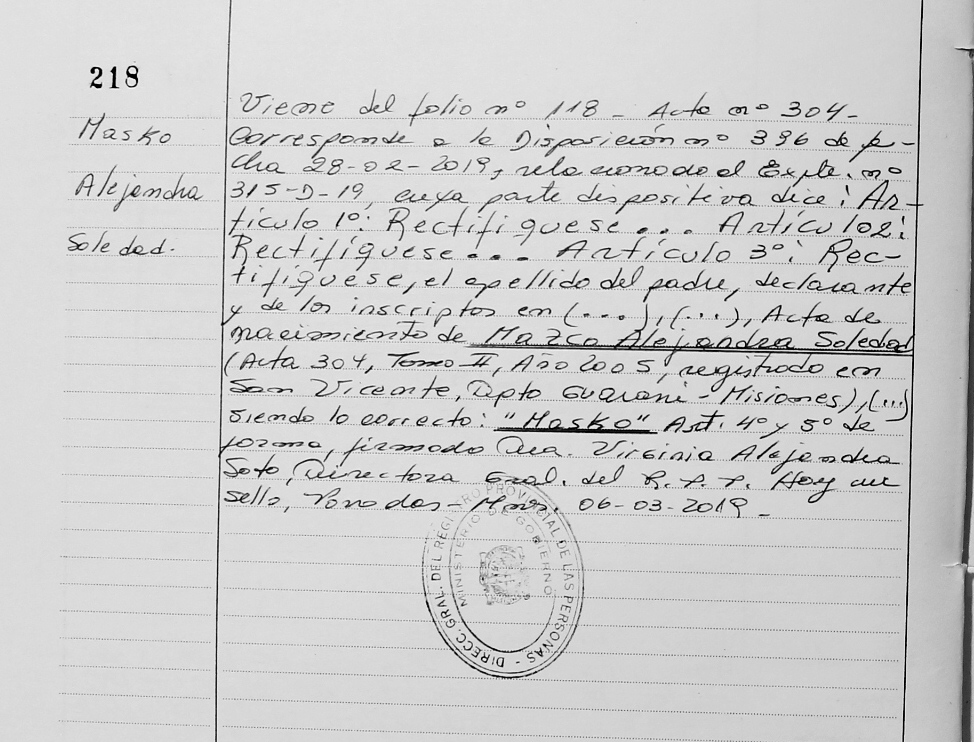 218
Masko
Alejandra
Soledad.
Viene del folio nº 118 - Acta nº 304 -
Corresponde a la Disposición nº 396 de fe-
cha 28-02-2019, relacionado al Expte. nº
315-D-19, cuya parte dispositiva dice: Ar-
tículo 1º: Rectifíquese... Artículo 2:
Rectifíquese... Artículo 3º: Rec-
tifíquese, el apellido del padre, declarante
y de los inscriptos en (...), (...), Acta de
nacimiento de Mazco Alejandra Soledad
(Acta 304, Tomo II, Año 2005, registrado en
San Vicente, Dpto Guaraní - Misiones), (...)
siendo lo correcto: "Masko" Art. 4º y 5º de
forma, firmado Dra. Virginia Alejandra
Soto, Directora Gral. del R.P.P. Hoy un
sello, Posadas - Mnes. 06-03-2019 -
DIRECC. GRAL. DEL REGISTRO PROVINCIAL DE LAS PERSONAS -
MINISTERIO DE GOBIERNO